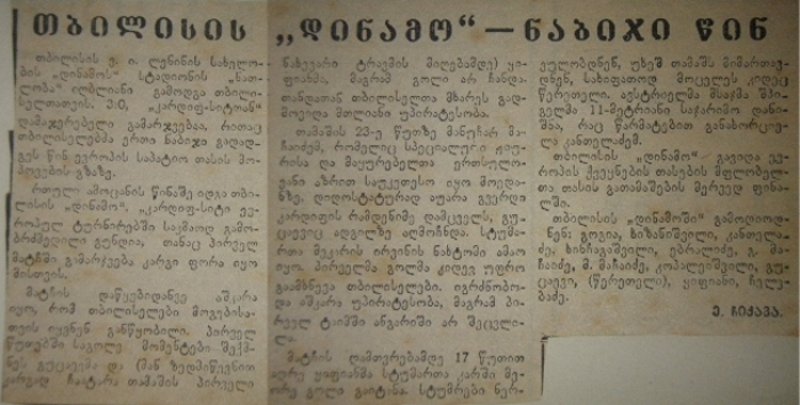 თბილისის „დინამო“ — ნაბიჯი წინ
თბილისის ვ. ი. ლენინის სახელო-
ბის „დინამოს“ სტადიონის „ნათ-
ლობა“ იღბლიანი გამოდგა თბილი-
სელთათვის. 3:0, „კარდიფ-სიტისთან“
დამაჯერებელი გამარჯვებაა, რითაც
თბილისელებმა ერთი ნაბიჯი გადად-
გეს წინ ევროპის საპატიო თასის მო-
პოვების გზაზე.
რთული ამოცანის წინაშე იდგა თბი-
ლისის „დინამო“. „კარდიფ-სიტი ევ-
როპულ ტურნირებში საკმაოდ გამო-
ბრძმედილი გუნდია, თანაც პირველ
მატჩში გამარჯვება კარგი ფორა იყო
მისთვის.
მატჩის დაწყებიდანვე აშკარა
იყო, რომ თბილისელები მოგებისა-
თვის იყვნენ განწყობილი. პირველ
წუთებში საგოლე მომენტები შექმ-
ნეს გუცაევმა და (მან ზედმიწევნით
კარგად ჩაატარა თამაშის პირველი
ნახევარი ტრავმის მიღებამდე) ყი-
ფიანმა, მაგრამ გოლი არ ჩანდა.
თანდათან თბილისელთა მხარეს გად-
მოვიდა მთლიანი უპირატესობა.
თამაშის 23-ე წუთზე მანუჩარ მა-
ჩაიძემ, რომელიც სპეციალური ჟიუ-
რისა და მაყურებელთა ერთსულო-
ვანი აზრით საუკეთესო იყო მოედა-
ნზე, დიდოსტატურად აუარა გვერდი
კარდიფის რამდენიმე დამცველს, გუ-
ცაევიც ადგილზე აღმოჩნდა. სტუმა-
რთა მეკარის ირვინის ნახტომი ამაო
იყო. პირველმა გოლმა კიდევ უფრო
გაამხნევა თბილისელები. იგრძნობო-
და აშკარა უპირატესობა, მაგრამ პი-
რველ ტაიმში ანგარიში არ შეცვლი-
ლა.
მატჩის დამთვრებამდე 17 წუთით
ადრე ყიფიანმა სტუმართა კარში მე-
ორე გოლი გაიტანა. სტუმრები ნერ-
ვიულობდნენ, უხეშ თამაშს მიმართავ-
დნენ, სახიფათოდ მოცელეს კიდეც
წერეთელი. ავსტრიელმა მსაჯმა შპი-
გელმა 11-მეტრიანი საჯარიმო დანი-
შნა, რაც წარმატებით განახორციე-
ლა კანთელაძემ.
თბილისის „დინამო“ გავიდა ევ-
როპის ქვეყნების თასების მფლობელ-
თა თასის გათამაშების მერვედ ფინა-
ლში.
თბილისის „დინამოში“ გამოდიოდ-
ნენ: გოგია, ზიზანიშვილი, კანთელა-
ძე, ხინჩაგაშვილი, ებრალიძე, გ. მა-
ჩაიძე, მ. მაჩაიძე, კოპალეიშვილი, გუ-
ცაევი, (წერეთელი), ყიფიანი, ჩელე-
ბაძე.
ვ. ჩიქავა.